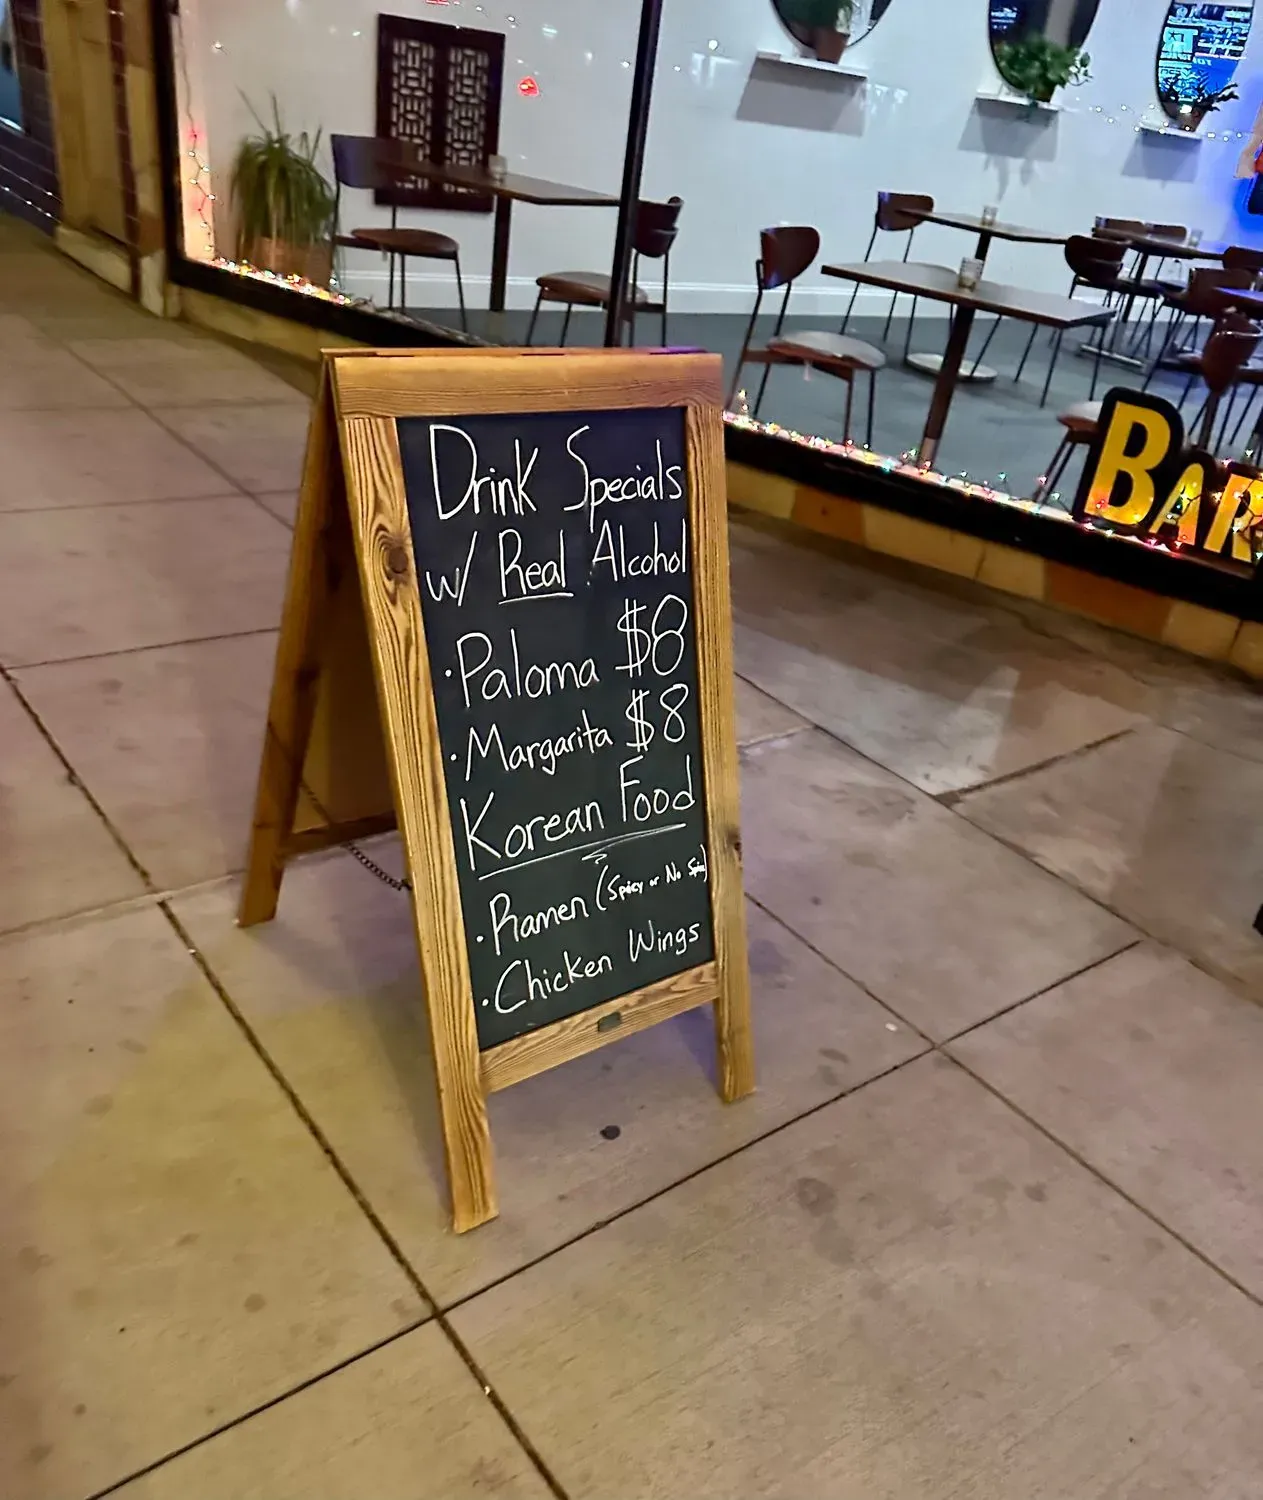 Drink Specials
w/ Real Alcohol
• Paloma $8
• Margarita $8
Korean Food
• Ramen (Spicy or No Spicy)
• Chicken Wings
BAR